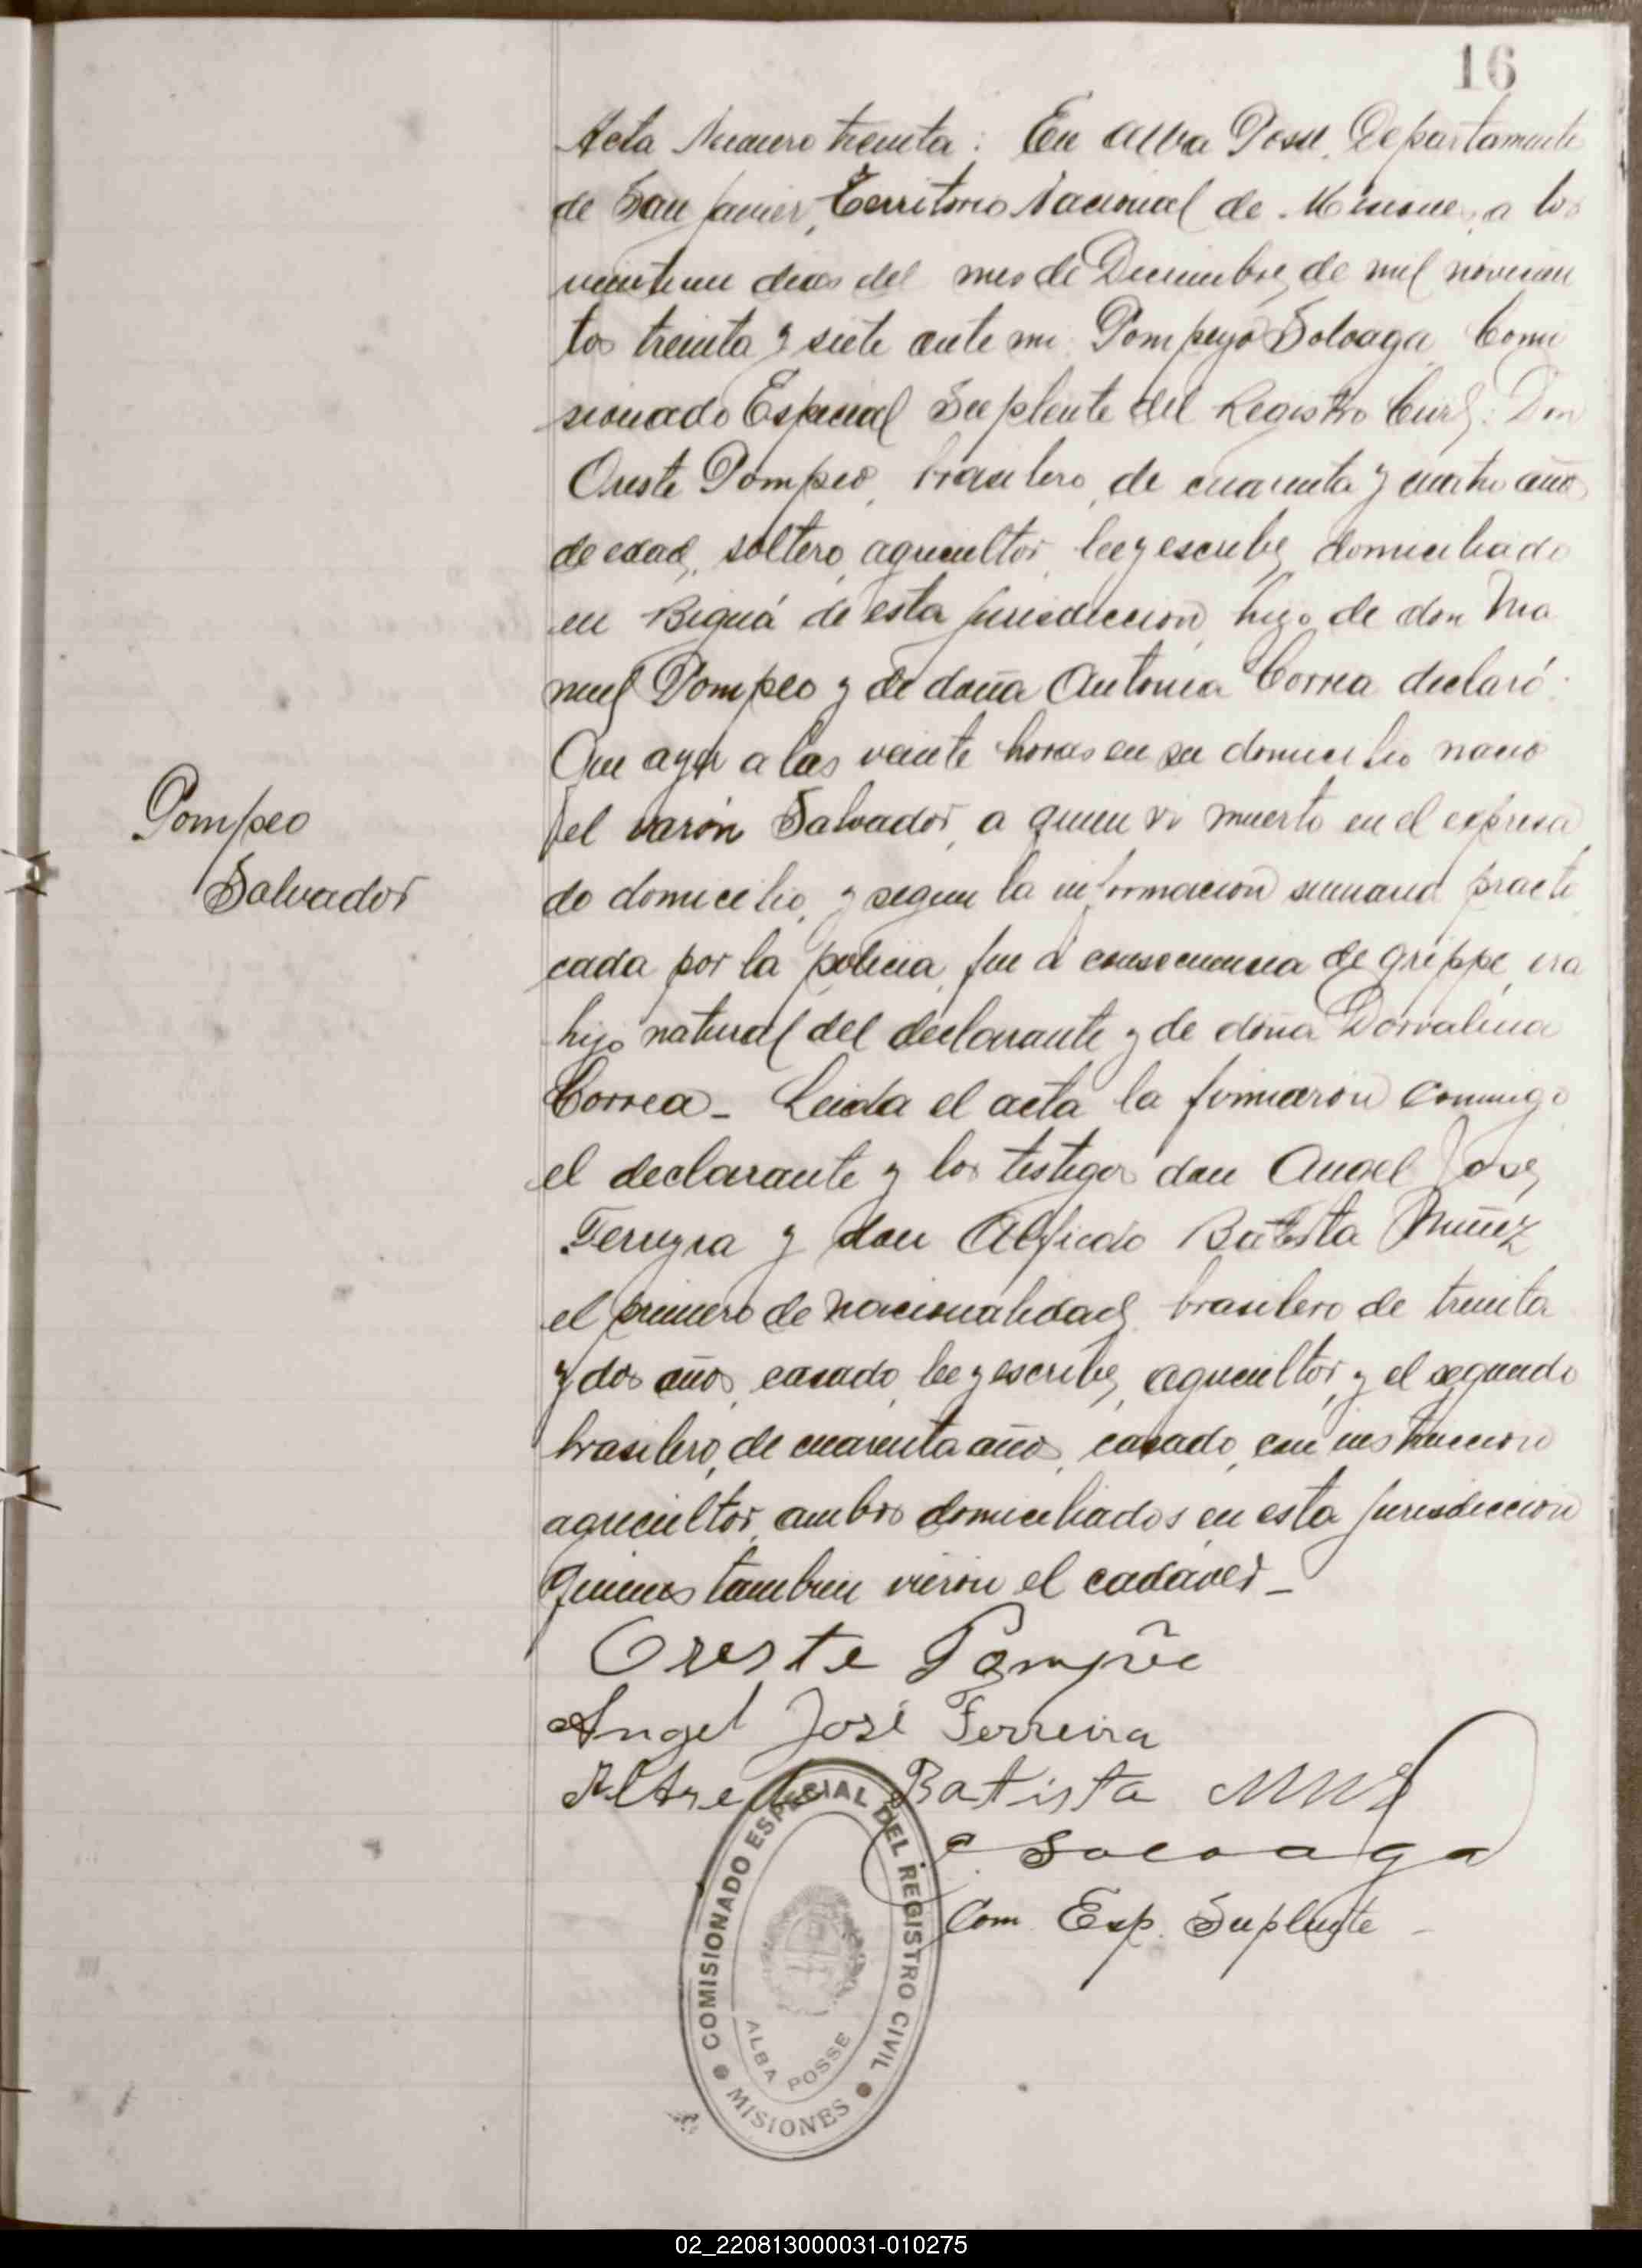 16
Acta Numero treinta: En Alba Posse, Departamento
de San Javier, Territorio Nacional de Misiones, a los
veintiun dias del mes de Diciembre, de mil novecien
tos treinta y siete ante mi Pompeyo Soloaga Comi
sionado Especial Suplente del Registro Civil: Don
Oreste Pompeo, brasilero, de cuarenta y cuatro años
de edad, soltero, agricultor, lee y escribe, domiciliado
en Biguá de esta jurisdiccion, hijo de don Ma
nuel Pompeo y de doña Antonia Correa declaró:
Que ayer a las veinte horas en su domicilio nacio
el varón Salvador, a quien vi muerto en el expresa
do domicilio, y segun la informacion sumaria practi
cada por la policia, fue a consecuencia de grippe, era
hijo natural del declarante y de doña Dorvalina
Correa_ Leida el acta la firmaron conmigo
el declarante y los testigos don Angel José
Ferreyra y don Alfredo Batista Muñez
el primero de nacionalidad brasilero de treinta
y dos años, casado, lee y escribe, agricultor, y el segundo
brasilero, de cuarenta años, casado, con instruccion
agricultor, ambos domiciliados en esta jurisdiccion
quienes tambien vieron el cadáver_
Pompeo
Salvador
Oreste Pompeo
Angel José Ferreira
Alfredo Batista
P. Soloaga
Com. Esp. Suplente
COMISIONADO ESPECIAL DEL REGISTRO CIVIL
ALBA POSSE
MISIONES
02_220813000031-010275